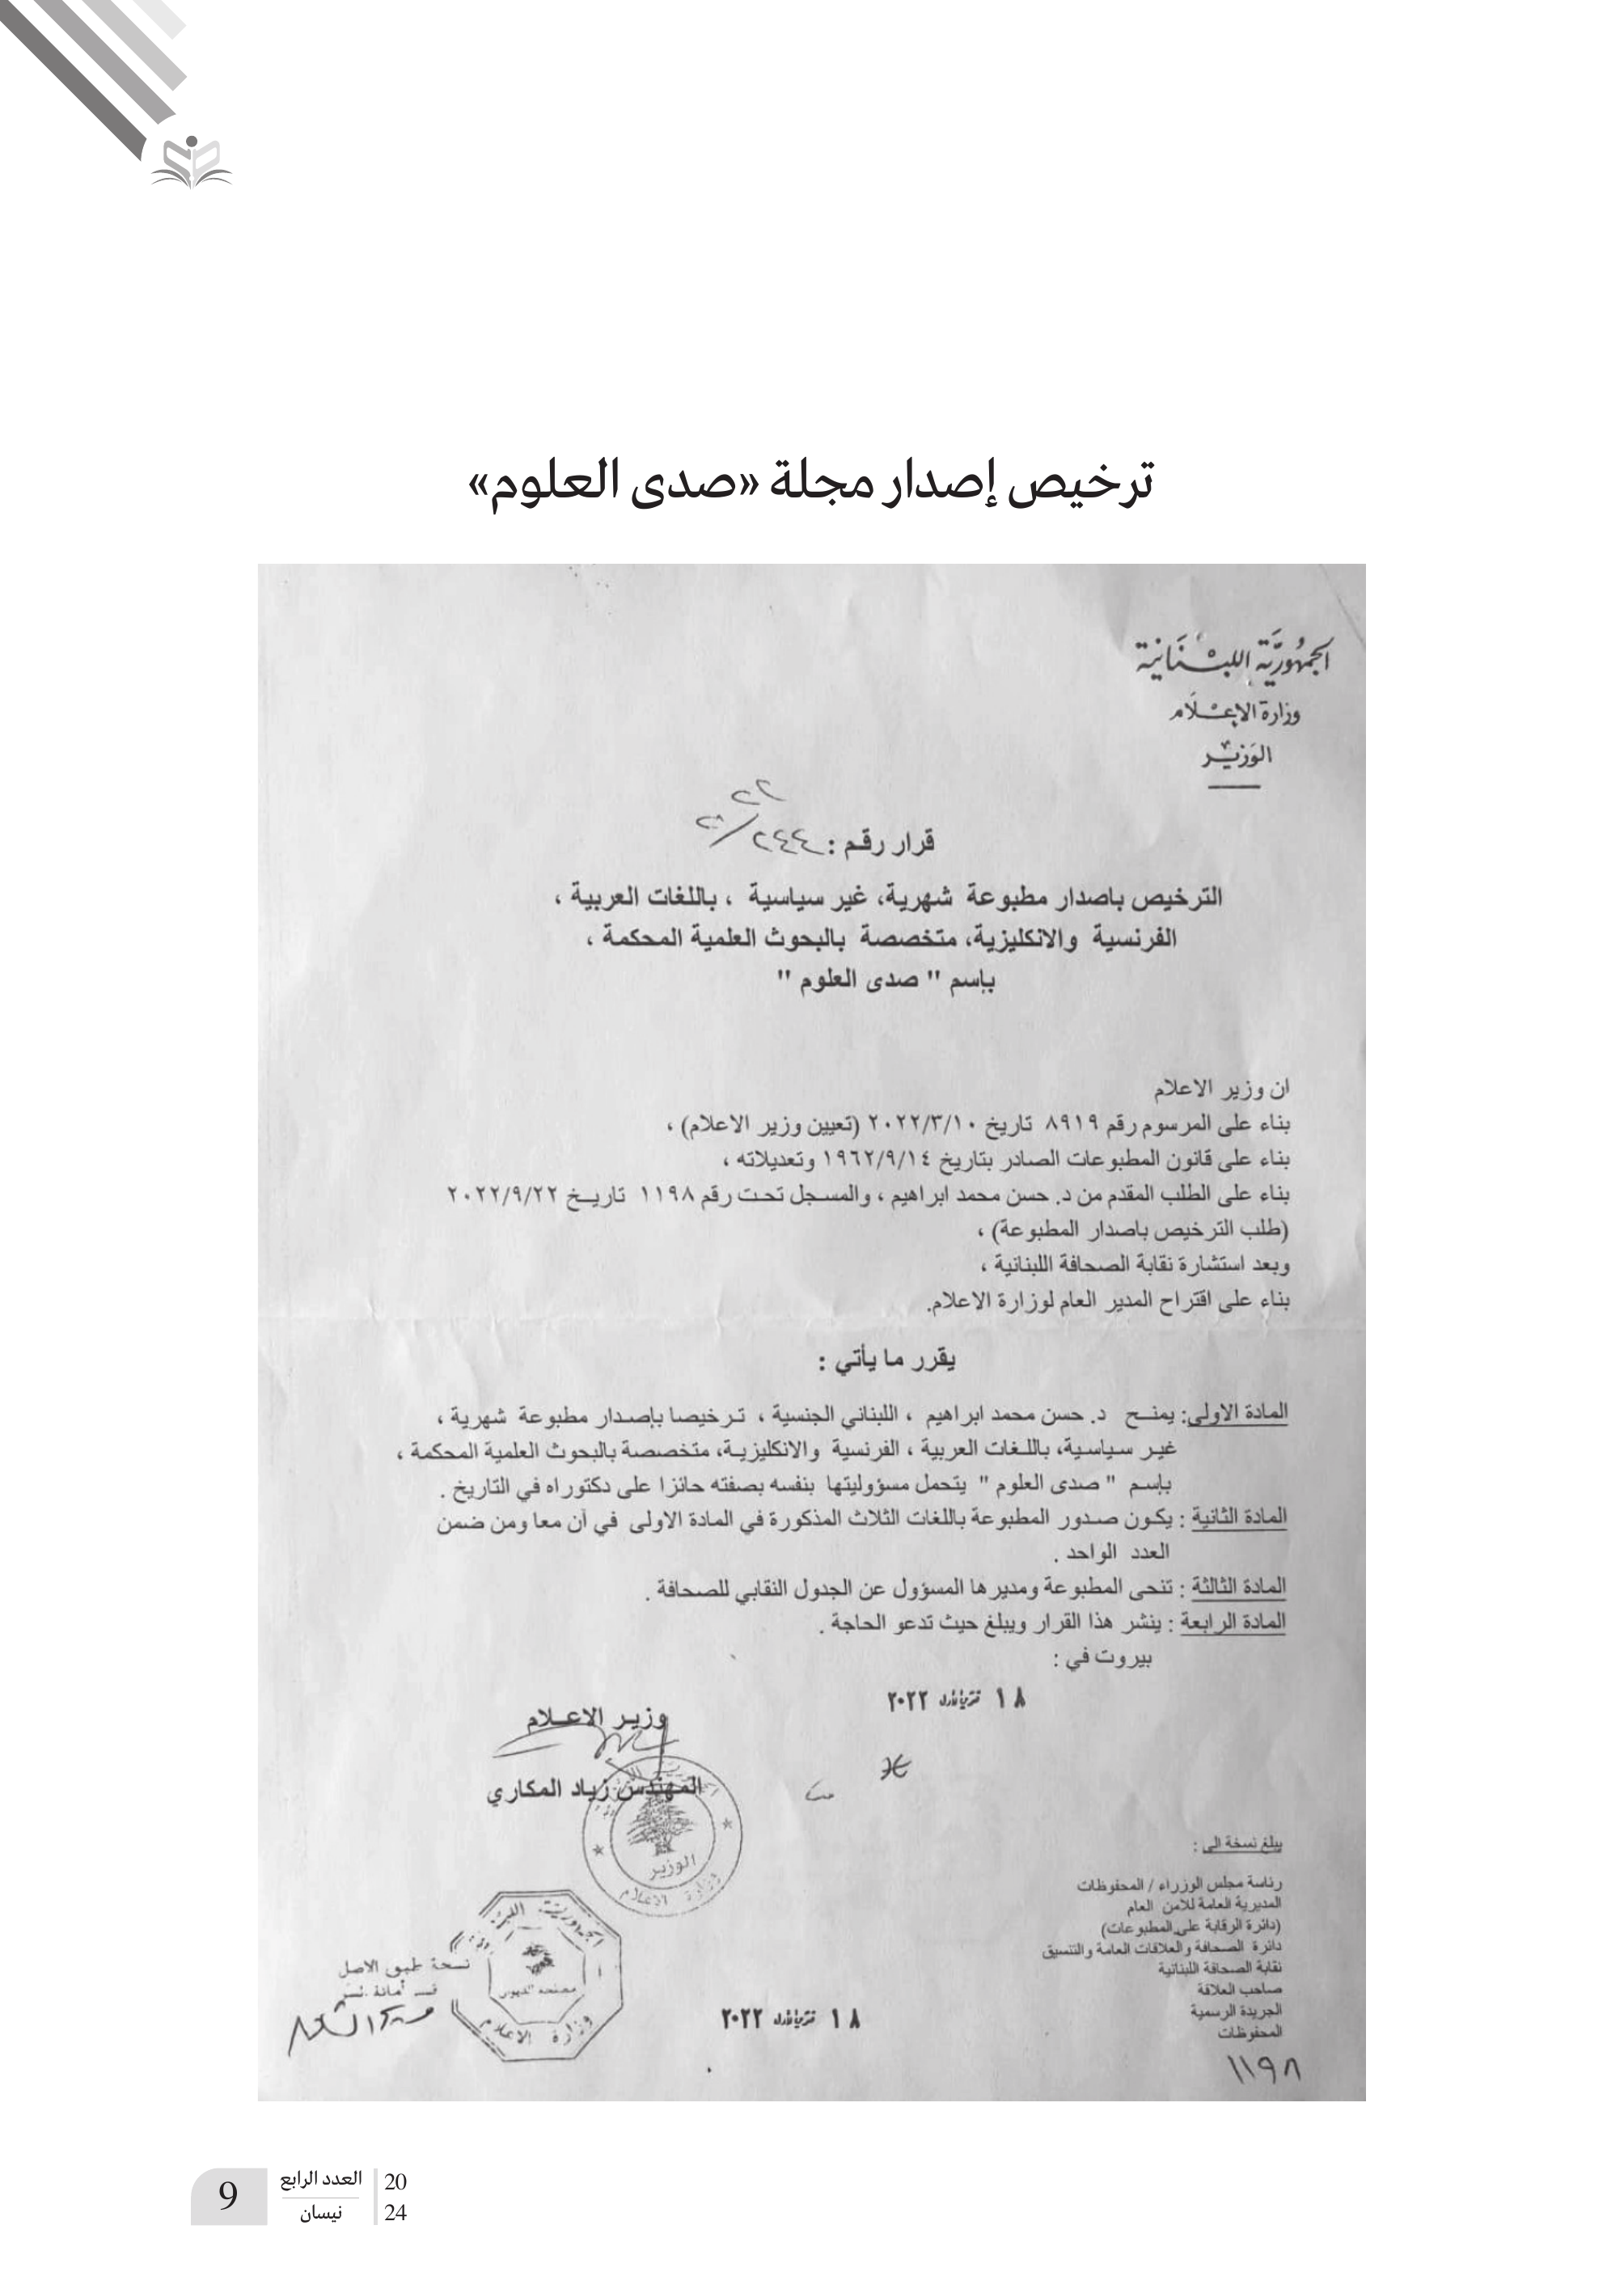 ترخيص إصدار مجلة «صدى العلوم»
الجمهورية اللبنانية
وزارة الإعلام
الوزير
قرار رقم : ٢٤٤
الترخيص باصدار مطبوعة شهرية، غير سياسية ، باللغات العربية ،
الفرنسية والانكليزية، متخصصة بالبحوث العلمية المحكمة ،
بإسم " صدى العلوم "
ان وزير الاعلام
بناء على المرسوم رقم ٨٩١٩ تاريخ ٢٠٢٢/٣/١٠ (تعيين وزير الاعلام) ،
بناء على قانون المطبوعات الصادر بتاريخ ١٩٦٢/٩/١٤ وتعديلاته ،
بناء على الطلب المقدم من د. حسن محمد ابراهيم ، والمسجل تحت رقم ١١٩٨ تاريخ ٢٠٢٢/٩/٢٢
(طلب الترخيص باصدار المطبوعة) ،
وبعد استشارة نقابة الصحافة اللبنانية ،
بناء على اقتراح المدير العام لوزارة الاعلام.
يقرر ما يأتي :
المادة الاولى: يمنح د. حسن محمد ابراهيم ، اللبناني الجنسية ، ترخيصا بإصدار مطبوعة شهرية ،
غير سياسية، باللغات العربية ، الفرنسية والانكليزية، متخصصة بالبحوث العلمية المحكمة ،
بإسم " صدى العلوم " يتحمل مسؤوليتها بنفسه بصفته حائزا على دكتوراه في التاريخ .
المادة الثانية : يكون صدور المطبوعة باللغات الثلاث المذكورة في المادة الاولى في أن معا ومن ضمن
العدد الواحد .
المادة الثالثة : تنحى المطبوعة ومديرها المسؤول عن الجدول النقابي للصحافة .
المادة الرابعة : ينشر هذا القرار ويبلغ حيث تدعو الحاجة .
بيروت في :
١٨ تشرين الأول ٢٠٢٢
وزير الاعلام
المهندس زياد المكاري
الوزير
وزارة الاعلام
يبلغ نسخة الى :
رئاسة مجلس الوزراء / المحفوظات
المديرية العامة للأمن العام
(دائرة الرقابة على المطبوعات)
دائرة الصحافة والعلاقات العامة والتنسيق
نقابة الصحافة اللبنانية
صاحب العلاقة
الجريدة الرسمية
المحفوظات
١١٩٨
وزارة الاعلام
نسخة طبق الاصل
١٨ تشرين الأول ٢٠٢٢
20 العدد الرابع
24 نيسان
9